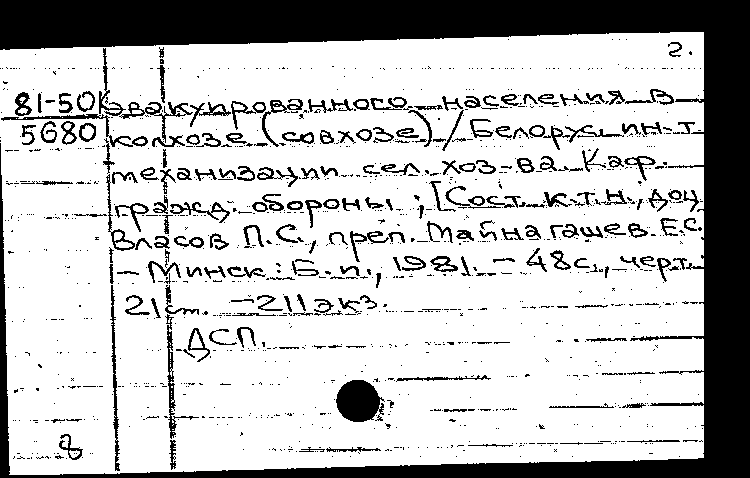 2.
81-50К эвакуированного населения в
5680 колхозе (совхозе) / Белорус. ин-т
механизации сел. хоз-ва. Каф.
гражд. обороны ; [Сост. к.т.н., доц.
Власов П.С., преп. Майнагашев Е.С.
- Минск : Б.и., 1981. - 48с., черт.
21 см. - 211 экз.
ДСП.